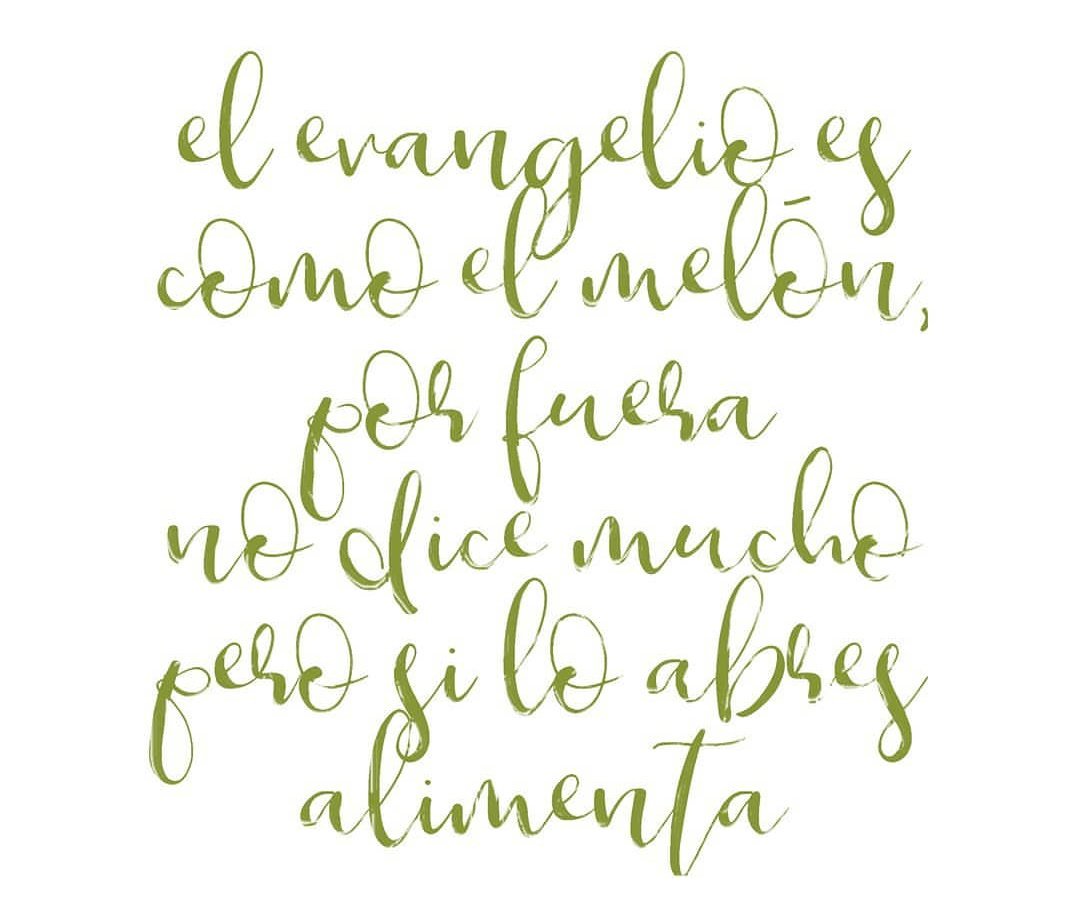 el evangelio es
como el melón,
por fuera
no dice mucho
pero si lo abres
alimenta